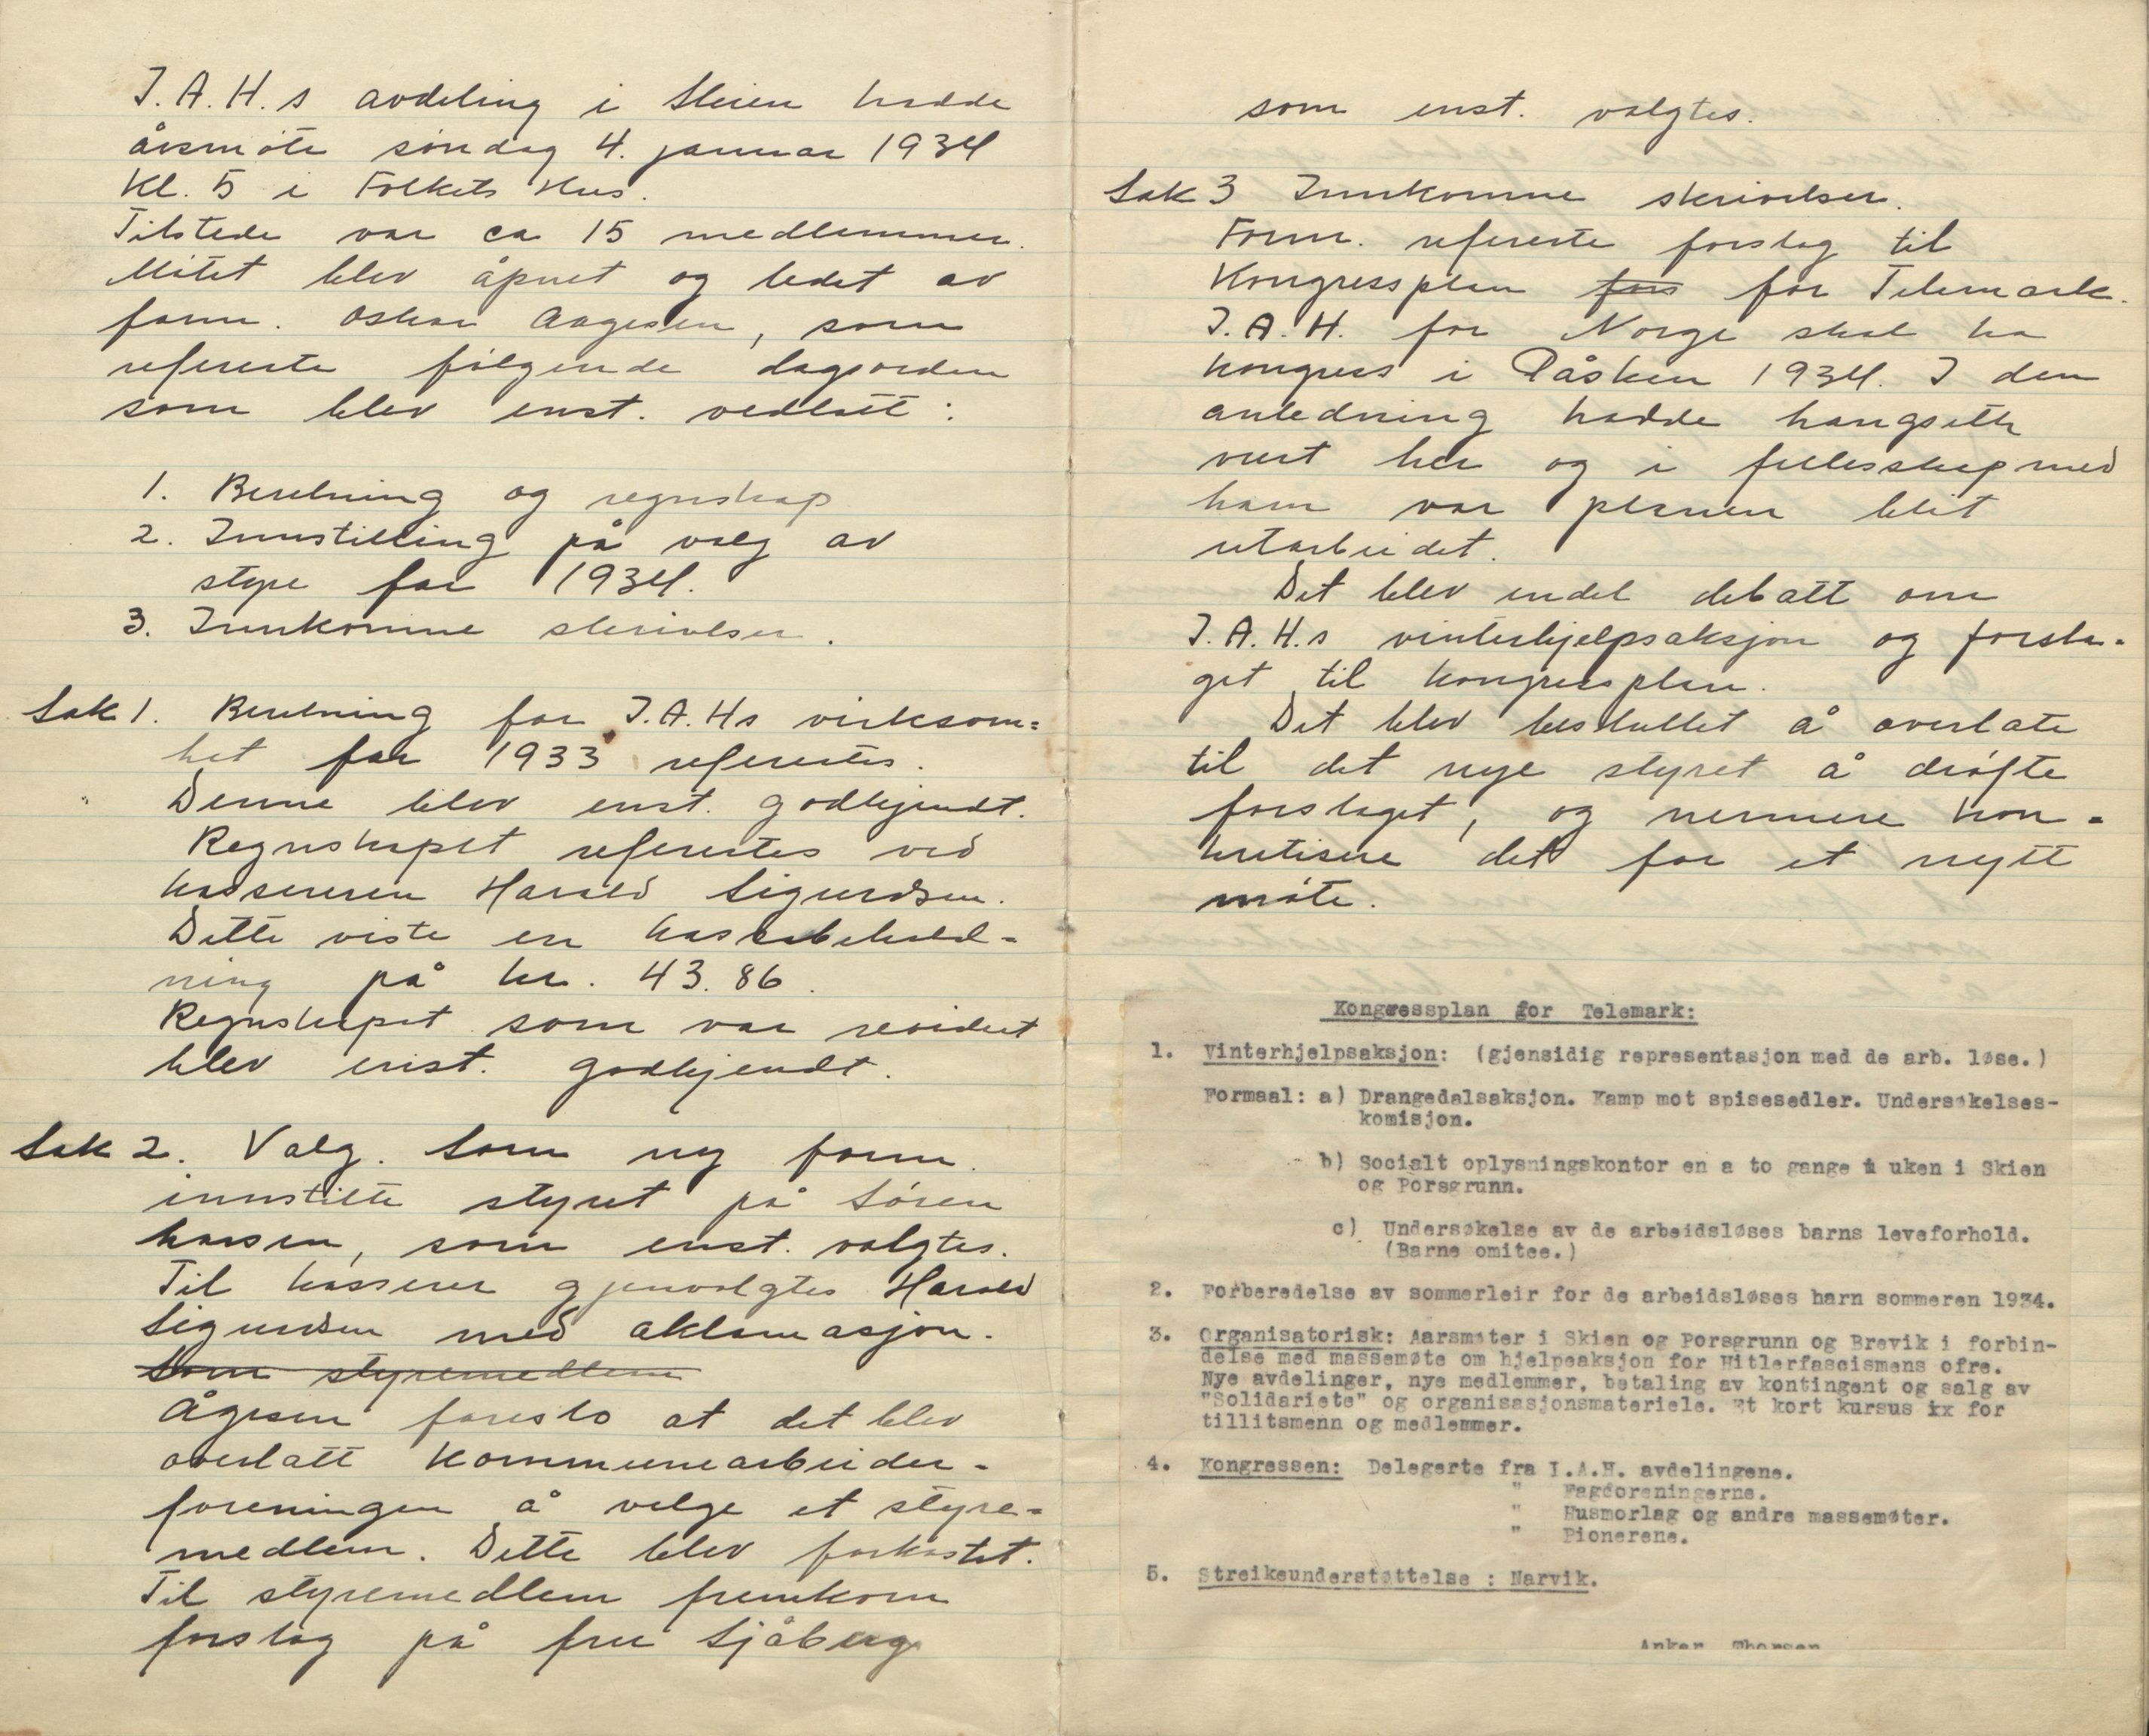 I.A.H.s avdeling i Skien hadde
årsmöte söndag 4. januar 1934
Kl. 5 i Folkets Hus.
Tilstede var ca 15 medlemmer.
Mötet blev åpnet og ledet av
form. Oskar Aagesen, som
refererte fölgende dagsorden
som blev enst. vedtatt:
1. Beretning og regnskap
2. Innstilling på valg av
styre for 1934.
3. Innkomne skrivelser.
Sak 1. Beretning for I.A.Hs virksom=
het for 1933 refertes.
Denne blev enst. godkjendt.
Regnskapet refertes ved
kassereren Harald Sigurdsen.
Dette viste en kassabehold-
ning på kr. 43.86.
Regnskapet som var revidert
blev enst. godkjendt.
Sak 2. Valg. Som ny form.
innstilte styret på Sören
Larsen, som enst. valgtes.
Til kasserer gjenvalgtes Harald
Sigurdsen med aklamasjon.
Som styremedlem
Ågesen foreslo at det blev
overlatt Kommunearbeider-
foreningen å velge et styre=
medlem. Dette blev forkastet.
Til styremedlem fremkom
forslag på fru Sjåberg
som enst. valgtes.
Sak 3 Innkomne skrivelser.
Form. refererte forslag til
Kongressplan fors for Telemark.
I.A.H. for Norge skal ha
kongress i Påsken 1934. I den
anledning hadde
vært her og i fellesskap med
ham var planen blit
utarbeidet.
Det blev endel debatt om
I.A.H.s vinterhjelpsaksjon og forsla=
get til kongressplan.
Det blev besluttet å overlate
til det nye styret å dröfte
forslaget, og nermere kon=
kretisere det for et nytt
möte.
Kongressplan for Telemark:
1. Vinterhjelpsaksjon: (gjensidig representasjon med de arb. løse.)
Formaal: a) Drangedalsaksjon. Kamp mot spisesedler. Undersøkelses-
komisjon.
b) Socialt oplysningskontor en a to gange i uken i Skien
og Porsgrunn.
c) Undersøkelse av de arbeidsløses barns leveforhold.
(Barne omitee.)
2. Forberedelse av sommerleir for de arbeidsløses barn sommeren 1934.
3. Organisatorisk: Aarsmøter i Skien og Porsgrunn og Brevik i forbin-
delse med massemøte om hjelpeaksjon for Hitlerfascismens ofre.
Nye avdelinger, nye medlemmer, betaling av kontingent og salg av
"Solidariets" og organisasjonsmateriele. Et kort kursus ix for
tillitsmenn og medlemmer.
4. Kongressen: Delegerte fra I.A.H. avdelingene.
" Fagforeningerne.
" Husmorlag og andre massemøter.
" Pionerene.
5. Streikeunderstøttelse : Narvik.
Anker Thorsen